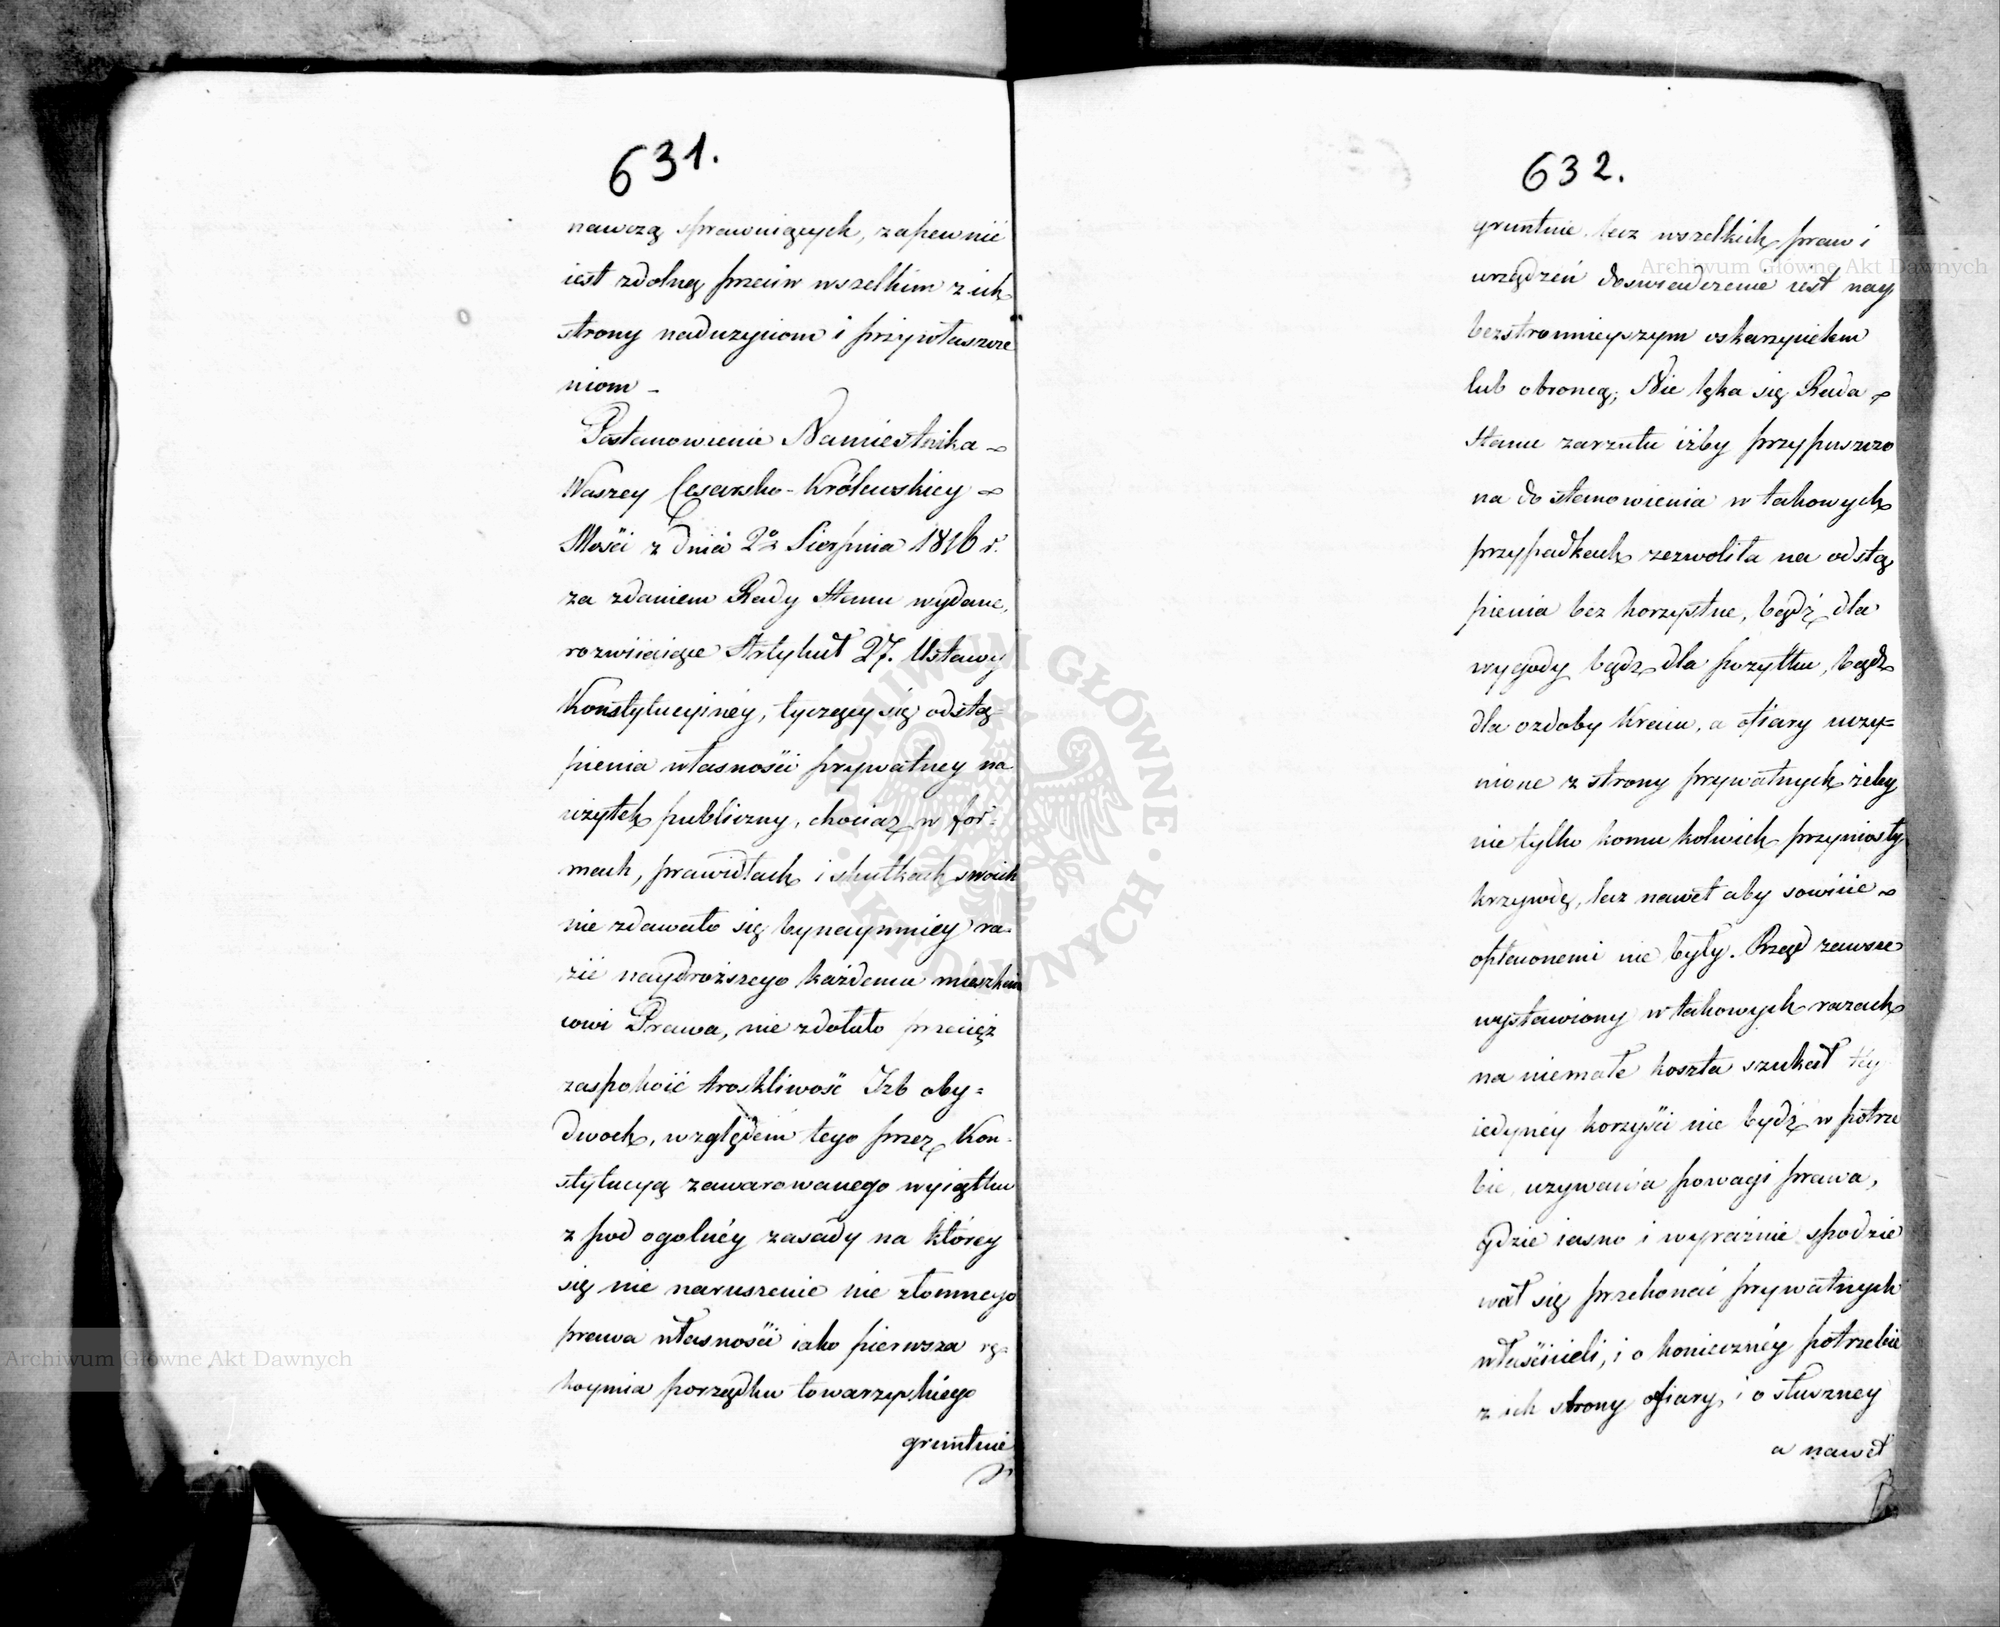 631.
nawczą sprawuiących, zapewnić
iest zdolną przeciw wszelkim z ich
strony nadużyciom i przywłaszcze
niom –
Postanowienie Namiestnika
Waszey Cesarsko-Królewskiey
Mości z dnia 2º Sierpnia 1816 r.
za zdaniem Rady Stanu wydane,
rozwiiaiące Artykuł 27. Ustawy
Konstytucyinéy, tyczącéy się odstą=
pienia własności prywatney na
użytek publiczny, chociaż w for-
mach, prawidłach i skutkach swoich
nie zdawało się bynaymniey ra-
zić naydroższego każdemu mieszkań
cowi Prawa, nie zdołało przecięż
zaspokoić troskliwość Izb oby=
dwoch, względem tego przez Kon-
stytucyą zawarowanego wyiątku
z pod ogolnéy zasady na którey
się nie naruszenie nie złomnego
prawa własności iako pierwsza rę=
koymia porządku towarzyskiego
gruntuie
632.
gruntuie. lecz wszelkich praw i
urządzeń doswiadczenie iest nay
bezstronnieyszym oskarzycielem
lub obroncą; Nie lęka się Rada
Stanu zarzutu iżby przypuszczo
na do stanowienia w takowych
przypadkach zezwoliła na odstą
pienia bez korzystne, bądź dla
wygody bądz dla pożytku, bądź
dla ozdoby Kraiu, a ofiary uczy=
nione z strony prywatnych żeby
nie tylko komu kolwiek przyniosły
krzywdę, lecz nawet aby sowicie
opłaconemi nie były. Rząd zawsze
wystawiony w takowych razach
na niemałe koszta szukał téy
iedynéy korzyści nie bydź w potrze
bie używania powagi prawa,
gdzie iasno i wyraźnie spodzie
wał się przekonać prywatnych
właścicieli, i o konieczney potrzebie
z ich strony ofiary, i o słuszney
a nawet
Archiwum Główne Akt Dawnych
Archiwum Główne Akt Dawnych
ARCHIWUM GŁÓWNE · AKT DAWNYCH ·